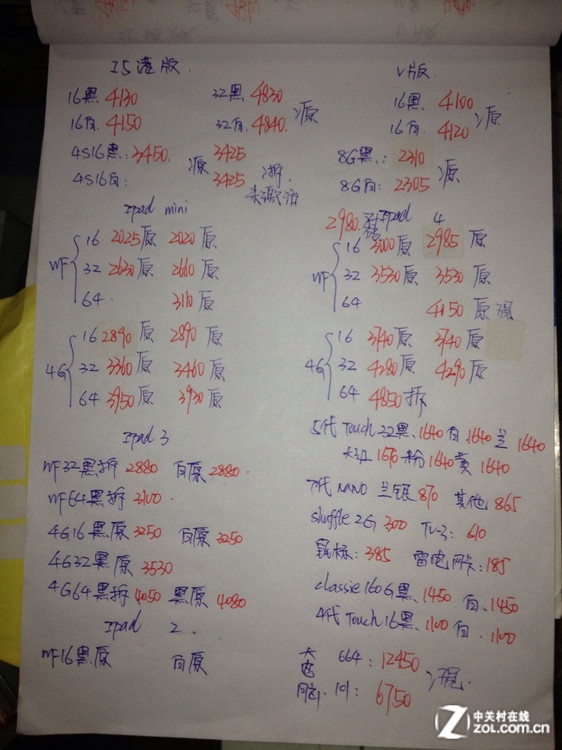 I5 港版
16黑 4130 32黑 4830
16白 4150 32白 4840 原
4S16黑: 3450 原 3425
4S16白: 3425
Ipad mini
WF 16 2025原 2020原
32 2630原 2660原
64 3110原
4G 16 2890原 2890原
32 3360原 3460原
64 3950原 3930原
Ipad 3
WF32黑拆 2880 白原 2880
WF64黑拆 3100
4G16黑原 3250 白原 3250
4G32黑原 3530
4G64黑拆 4050 黑原 4080
Ipad 2
WF16黑原 白原
V版
16黑 4100
16白 4120 原
8G黑: 2310
8G白: 2305 原
2980 Ipad 4
WF 16 3000原 2985原
32 3530原 3530原
64 4150原
4G 16 3740原 3740原
32 4280原 4290原
64 4850拆
5代 Touch 32黑 1640 白 1640 兰 1640
大红 1670 粉 1640 黄 1640
7代 NANO 兰银 870 其他 865
Shuffle 2G 300 TV-3: 610
鼠标: 385 雷电网卡: 185
classic 160G黑 1450 白 1450
4代 Touch 16黑 1100 白 1100
大电脑 664: 12450
101: 6750
中关村在线
zol.com.cn